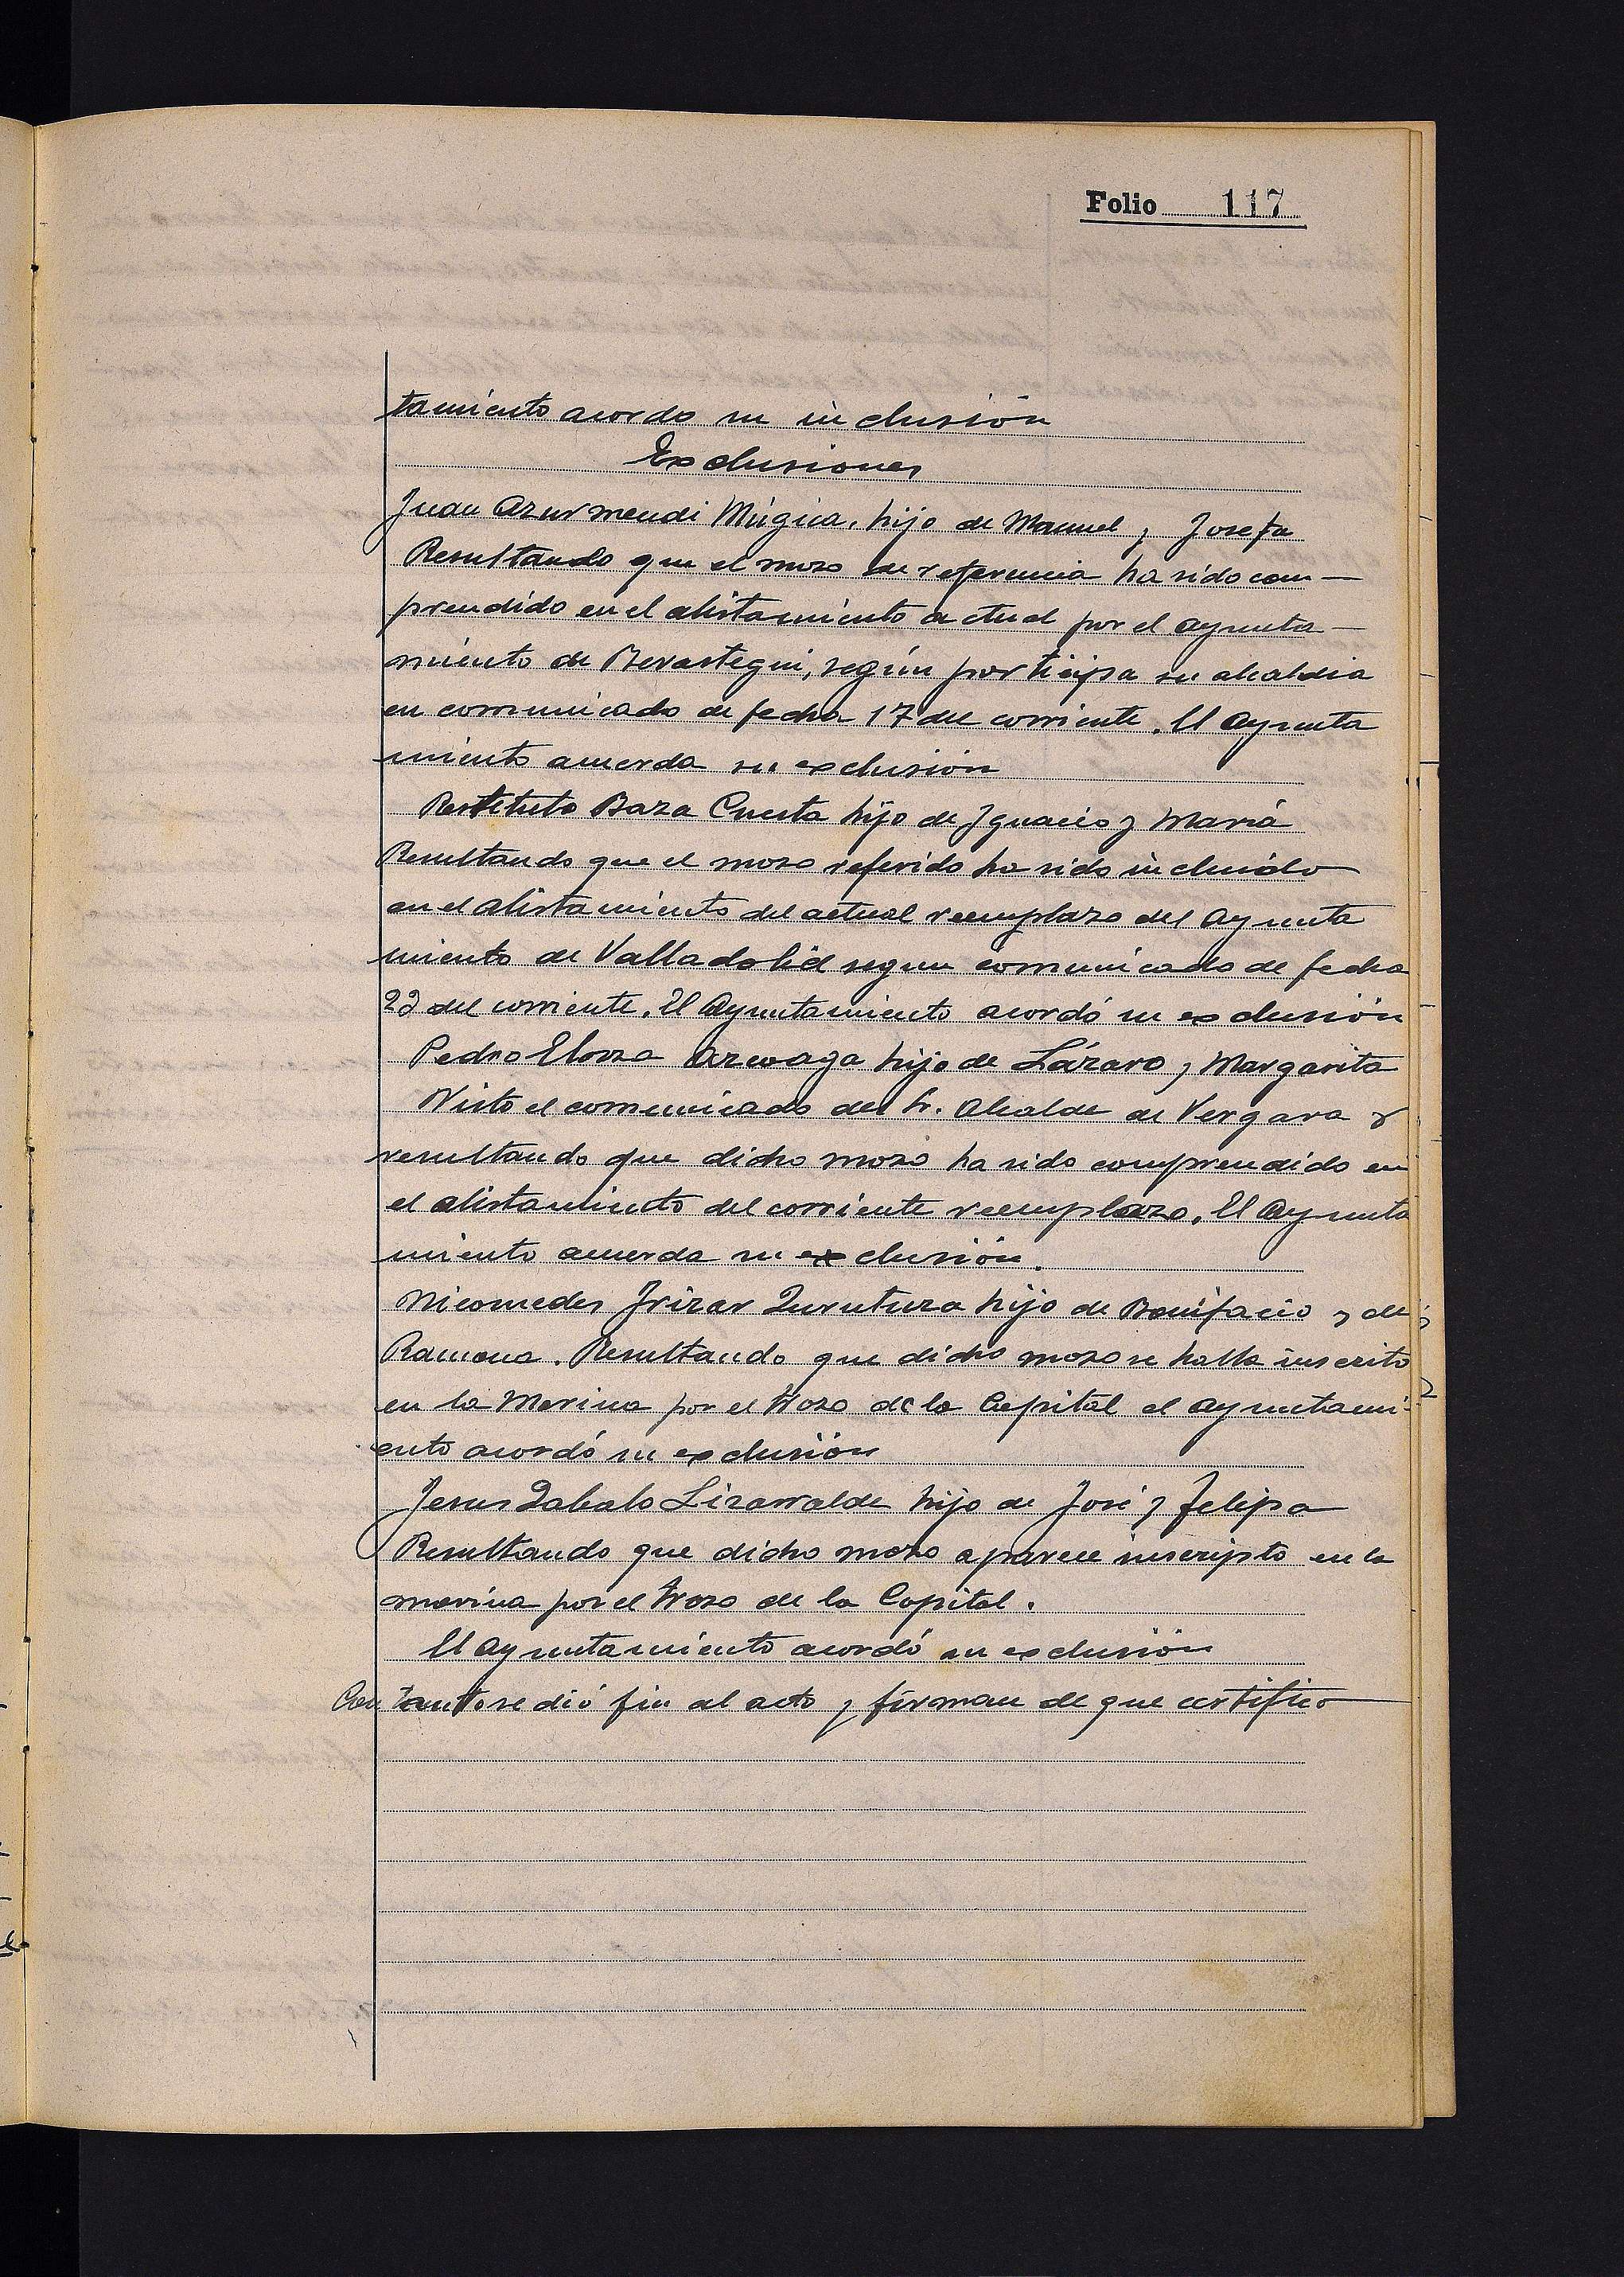 Folio 117
tamiento acordo su inclusión
Exclusiones
Juan Azurmendi Múgica, hijo de Manuel y Josefa
Resultando que el mozo de referencia ha sido com—
prendido en el alistamiento actual por el ayunta—
miento de Berastegui, según participa su alcaldia
en comunicado de fecha 17 del corriente. El Ayunta
miento acuerda su exclusión
Restituto Baza Cuesta hijo de Ignacio y Maria
Resultando que el mozo referido ha sido incluido
en el alistamiento del actual reemplazo del Ayunta
miento de Valladolid segun comunicado de fecha
22 del corriente. El Ayuntamiento acordó su exclusión
Pedro Elorza hijo de Lázaro y Margarita
Visto el comunicado del Sr. Alcalde de Vergara y
resultando que dicho mozo ha sido comprendido en
el alistamiento del corriente reemplazo. El Ayunta
miento acuerda su exclusión.
Nicomedes Irizar Zurutuza hijo de Bonifacio y de
Ramona. Resultando que dicho mozo se halla inscrito
en la Marina por el trozo de la Capital el ayuntami-
ento acordó su exclusión
Jesus Zabalo Lizarralde hijo de José y Felipa
Resultando que dicho mozo aparece inscripto en la
marina por el trozo de la Capital.
El Ayuntamiento acordó su exclusión
Con tanto se dió fin al acto y firman de que certifico